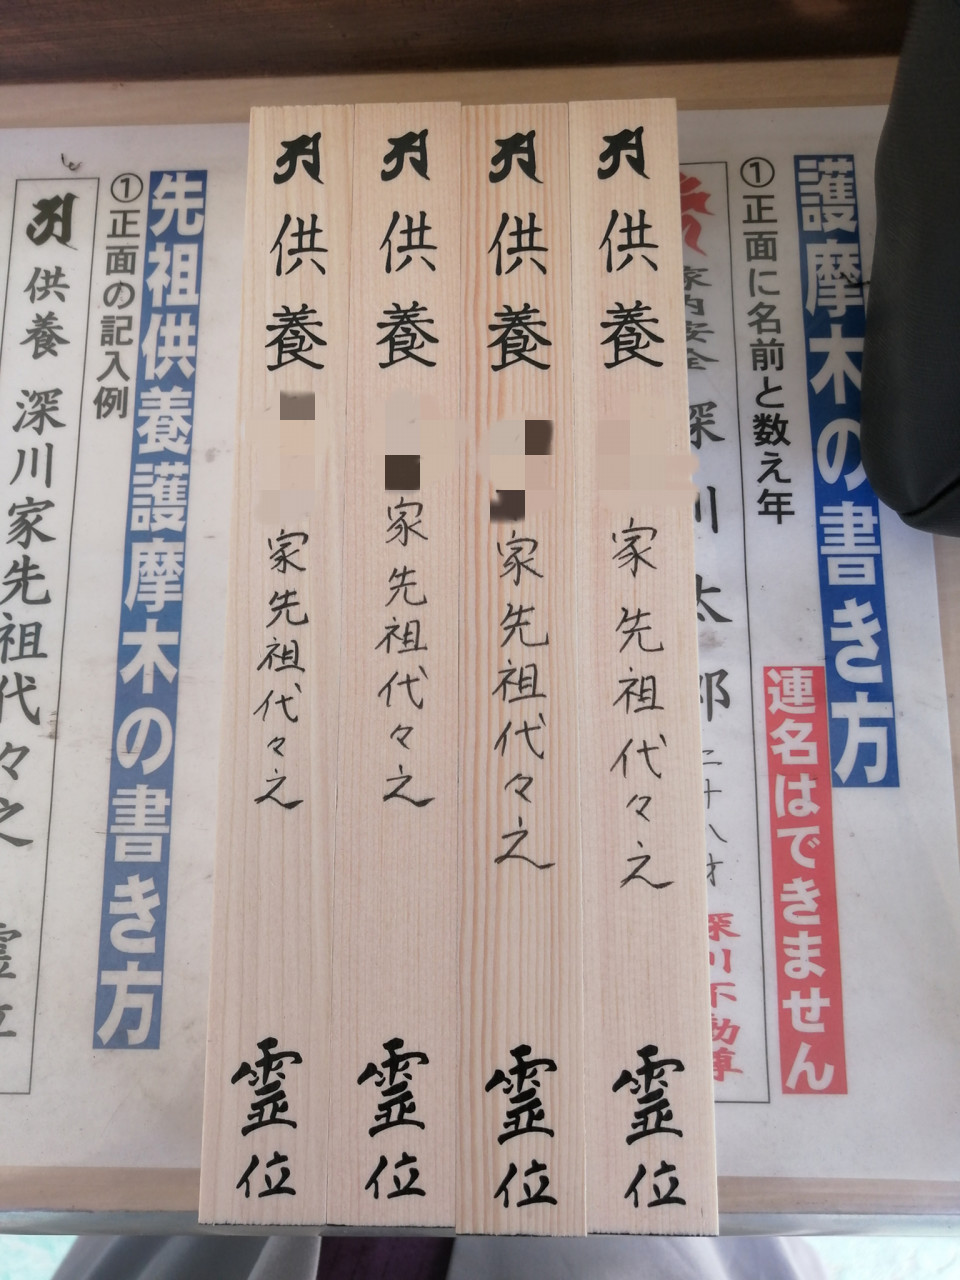 護摩木の書き方
連名はできません
①正面に名前と数え年
家内安全
深川太郎
二十八才
深川不動尊
供養
家先祖代々之
霊位
供養
家先祖代々之
霊位
供養
家先祖代々之
霊位
供養
家先祖代々之
霊位
先祖供養護摩木の書き方
①正面の記入例
供養 深川家先祖代々之 霊位